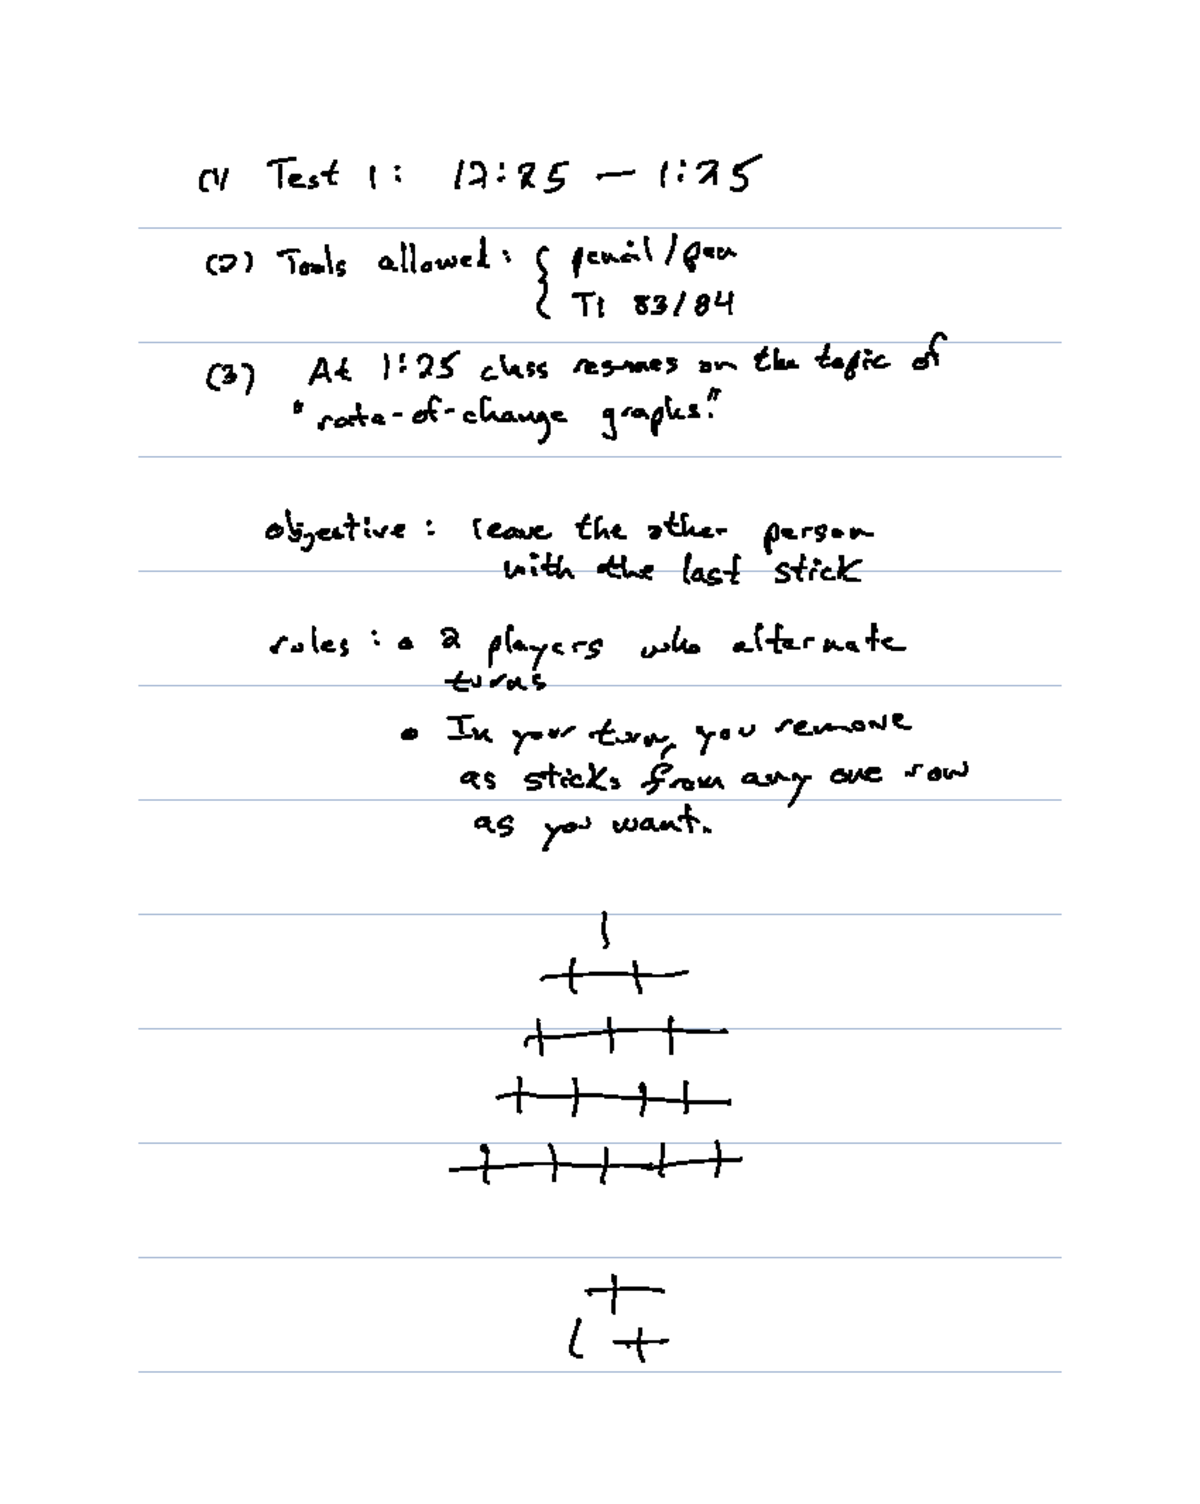 (1) Test 1: 12:25 — 1:25
(2) Tools allowed: { pencil/pen
TI 83/84
(3) At 1:25 class resumes on the topic of
"rate-of-change graphs."
objective: leave the other person
with the last stick
rules: • 2 players who alternate
turns
• In your turn, you remove
as sticks from any one row
as you want.